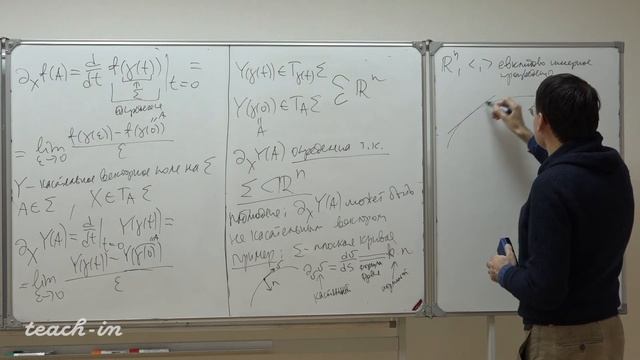 ∂_X f(A) = d/dt f(γ(t))|_{t=0} =
Σ
= lim_{ε→0} (f(γ(ε)) - f(γ(0)))/ε
A
Y - касательное векторное поле на Σ
A ∈ Σ, X ∈ T_A Σ
∂_X Y(A) = d/dt|_{t=0} Y(γ(t)) =
= lim_{ε→0} (Y(γ(ε)) - Y(γ(0)))/ε
A
Y(γ(t)) ∈ T_{γ(t)} Σ
Y(γ(0)) ∈ T_A Σ
A
Σ ⊂ ℝⁿ
∂_X Y(A) определена т.к.
Σ ⊂ ℝⁿ
проблема: ∂_X Y(A) может быть
не касательным вектором
Пример: Σ - плоская кривая
∂_v v = dv/ds = k · n
n
касательный
ℝⁿ, <,> евклидово скалярное
произведение
teach-in